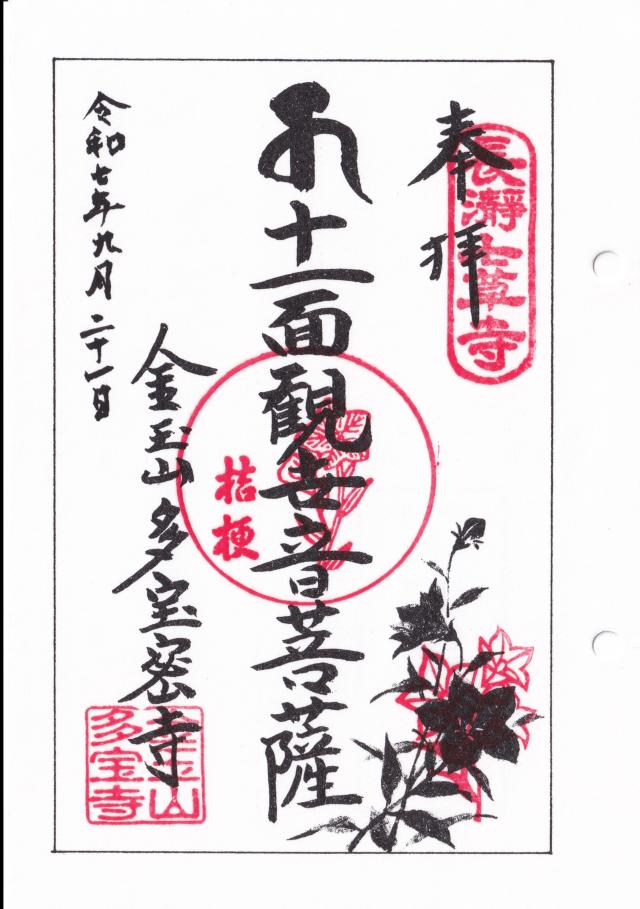 奉拝
長瀞七草寺
十一面観世音菩薩
桔梗
金玉山多宝密寺
金玉山
多宝寺
令和七年九月二十一日